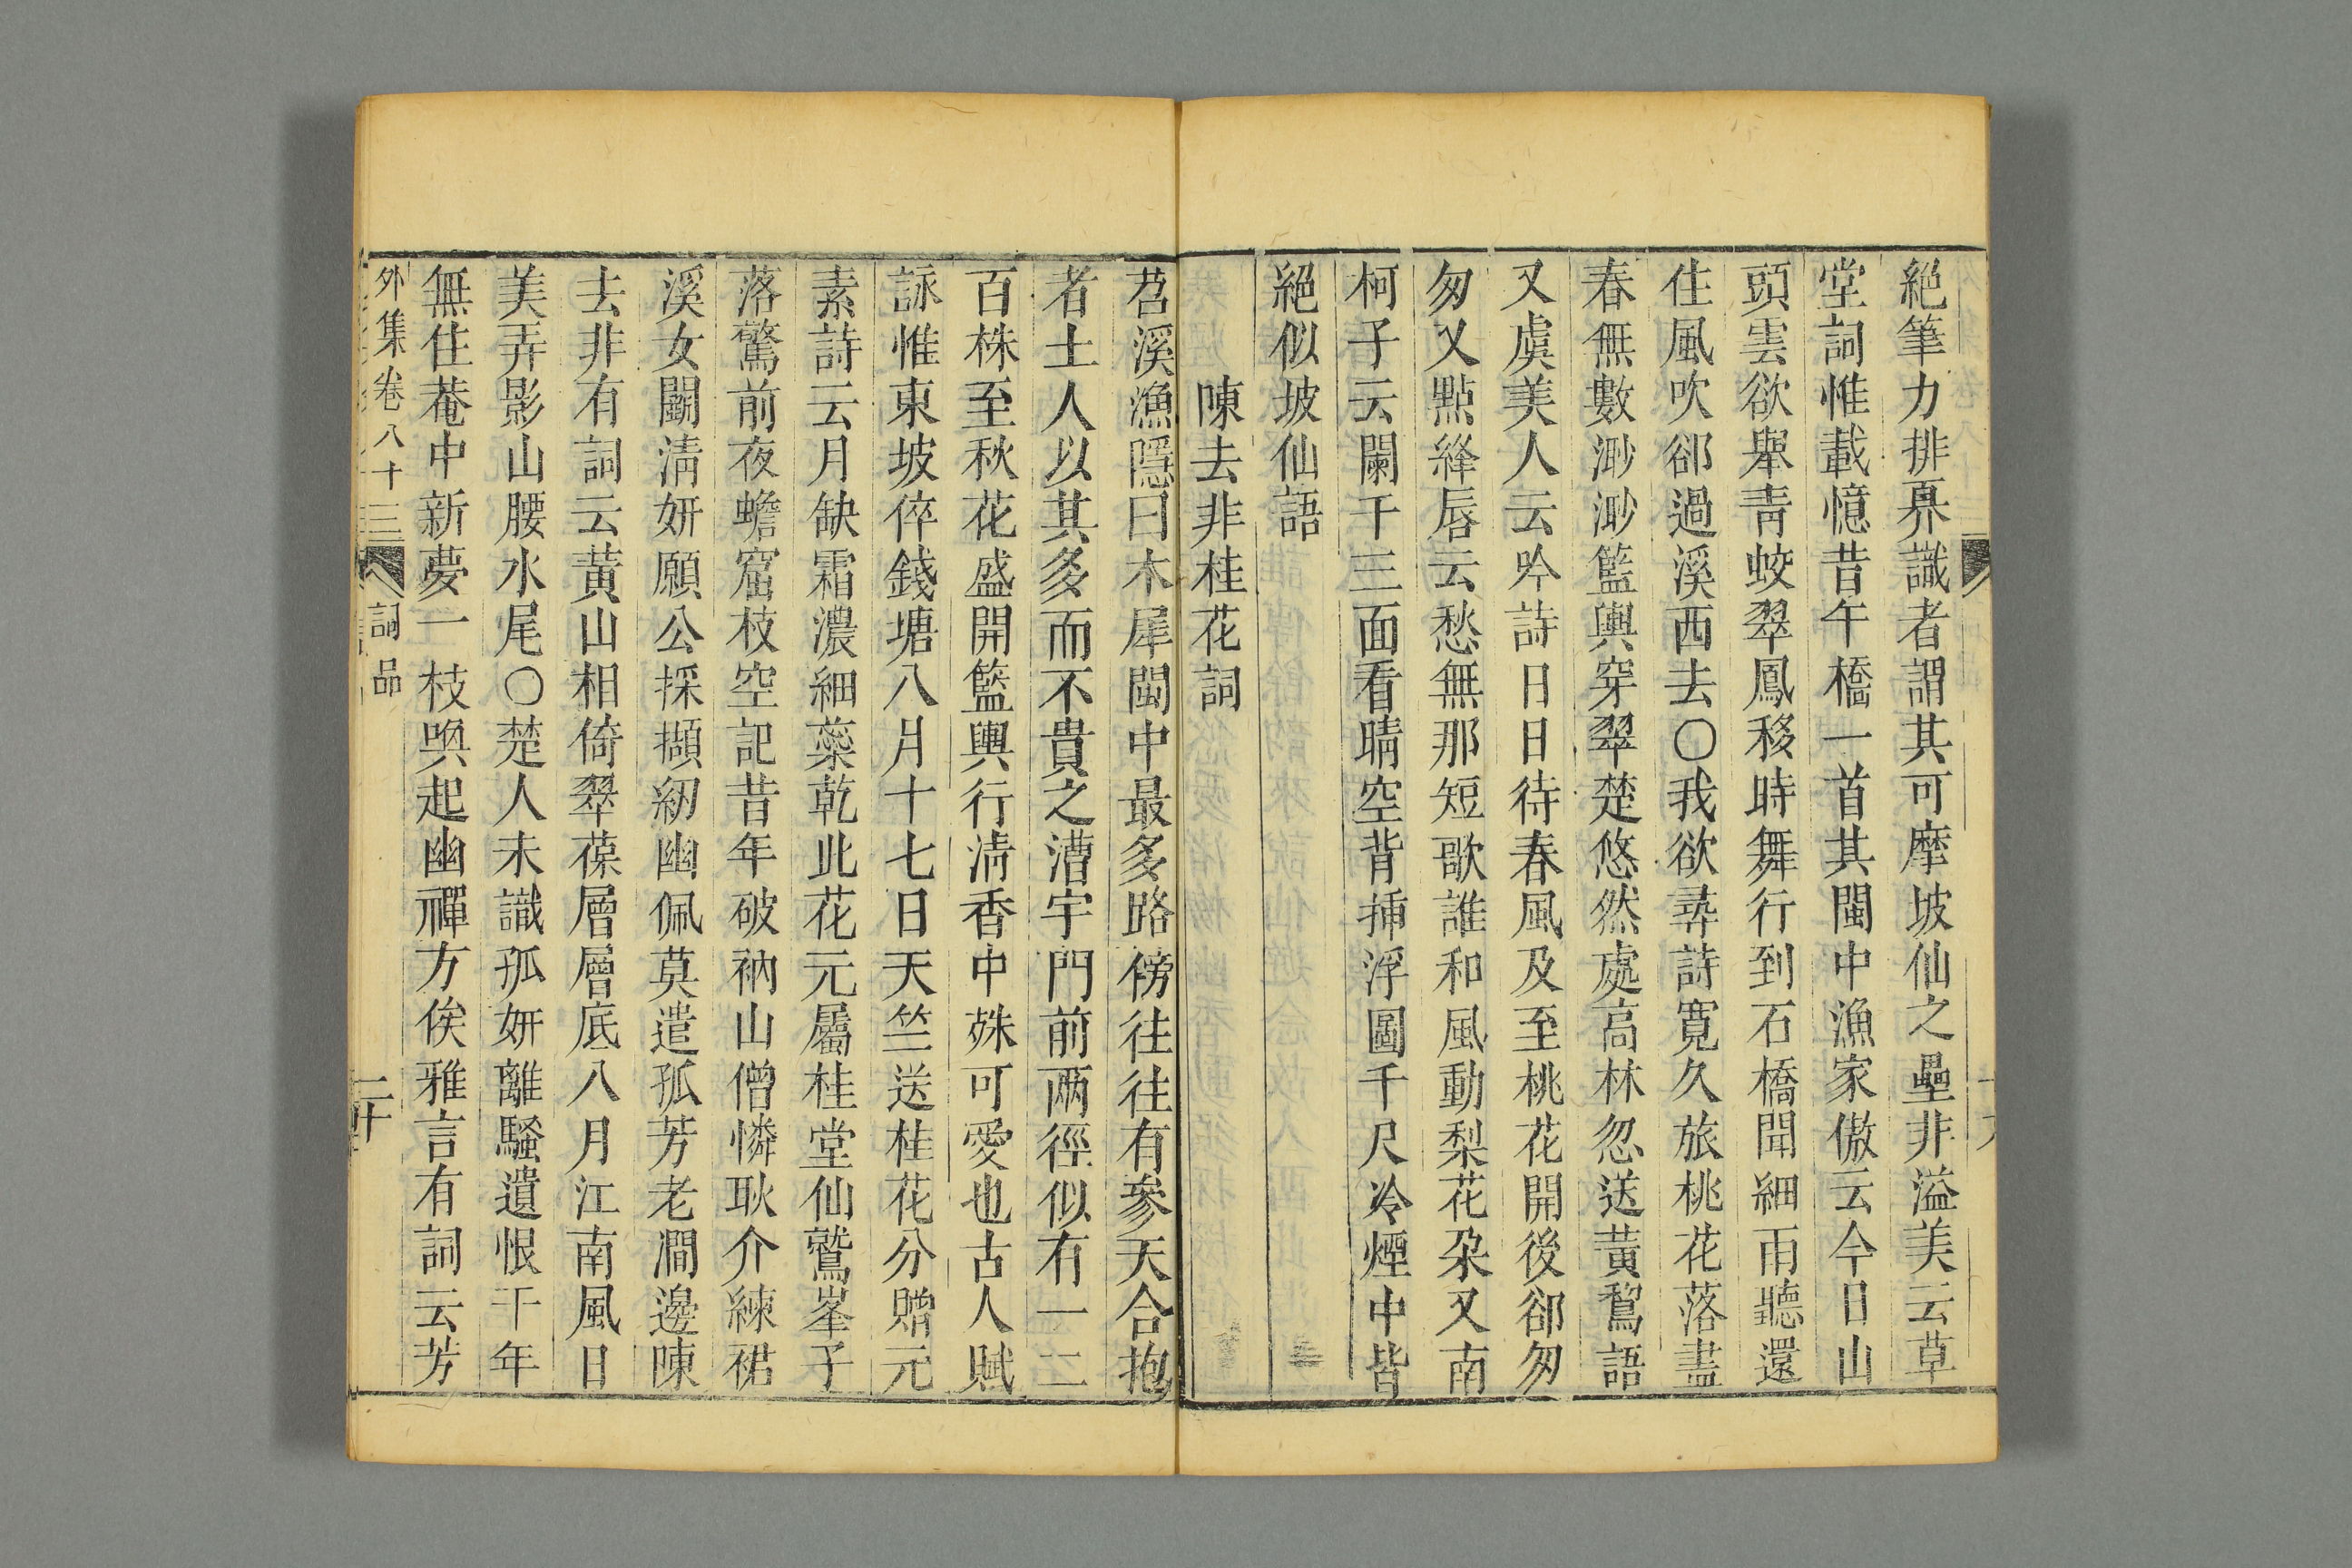 絕筆力排奡識者謂其可摩坡仙之壘非溢美云草
堂詞惟載憶昔午橋一首其閩中漁家傲云今日山
頭雲欲舉青蛟翠鳳移時舞行到石橋聞細雨聽還
住風吹郤過溪西去〇我欲尋詩寬久旅桃花落盡
春無數渺渺籃輿穿翠楚悠然處高林忽送黃鸝語
又虞美人云吟詩日日待春風及至桃花開後郤匆
匆又點絳唇云愁無那短歌誰和風動梨花朶又南
柯子云闌干三面看晴空背揷浮圖千尺冷煙中皆
絕似坡仙語
陳去非桂花詞
苕溪漁隱曰木犀閩中最多路傍往往有參天合抱
者土人以其多而不貴之漕宇門前兩徑似有一二
百株至秋花盛開籃輿行清香中殊可愛也古人賦
詠惟東坡倅錢塘八月十七日天竺送桂花分贈元
素詩云月缺霜濃細蘂乾此花元屬桂堂仙鷲峯子
落驚前夜蟾窟枝空記昔年破衲山僧憐耿介練裙
溪女鬭清妍願公採擷紉幽佩莫遣孤芳老澗邊陳
去非有詞云黃山相倚翠葆層層底八月江南風日
美弄影山腰水尾〇楚人未識孤妍離騷遺恨千年
無住菴中新夢一枝喚起幽禪方俟雅言有詞云芳
外集卷八十三 詞品 二十